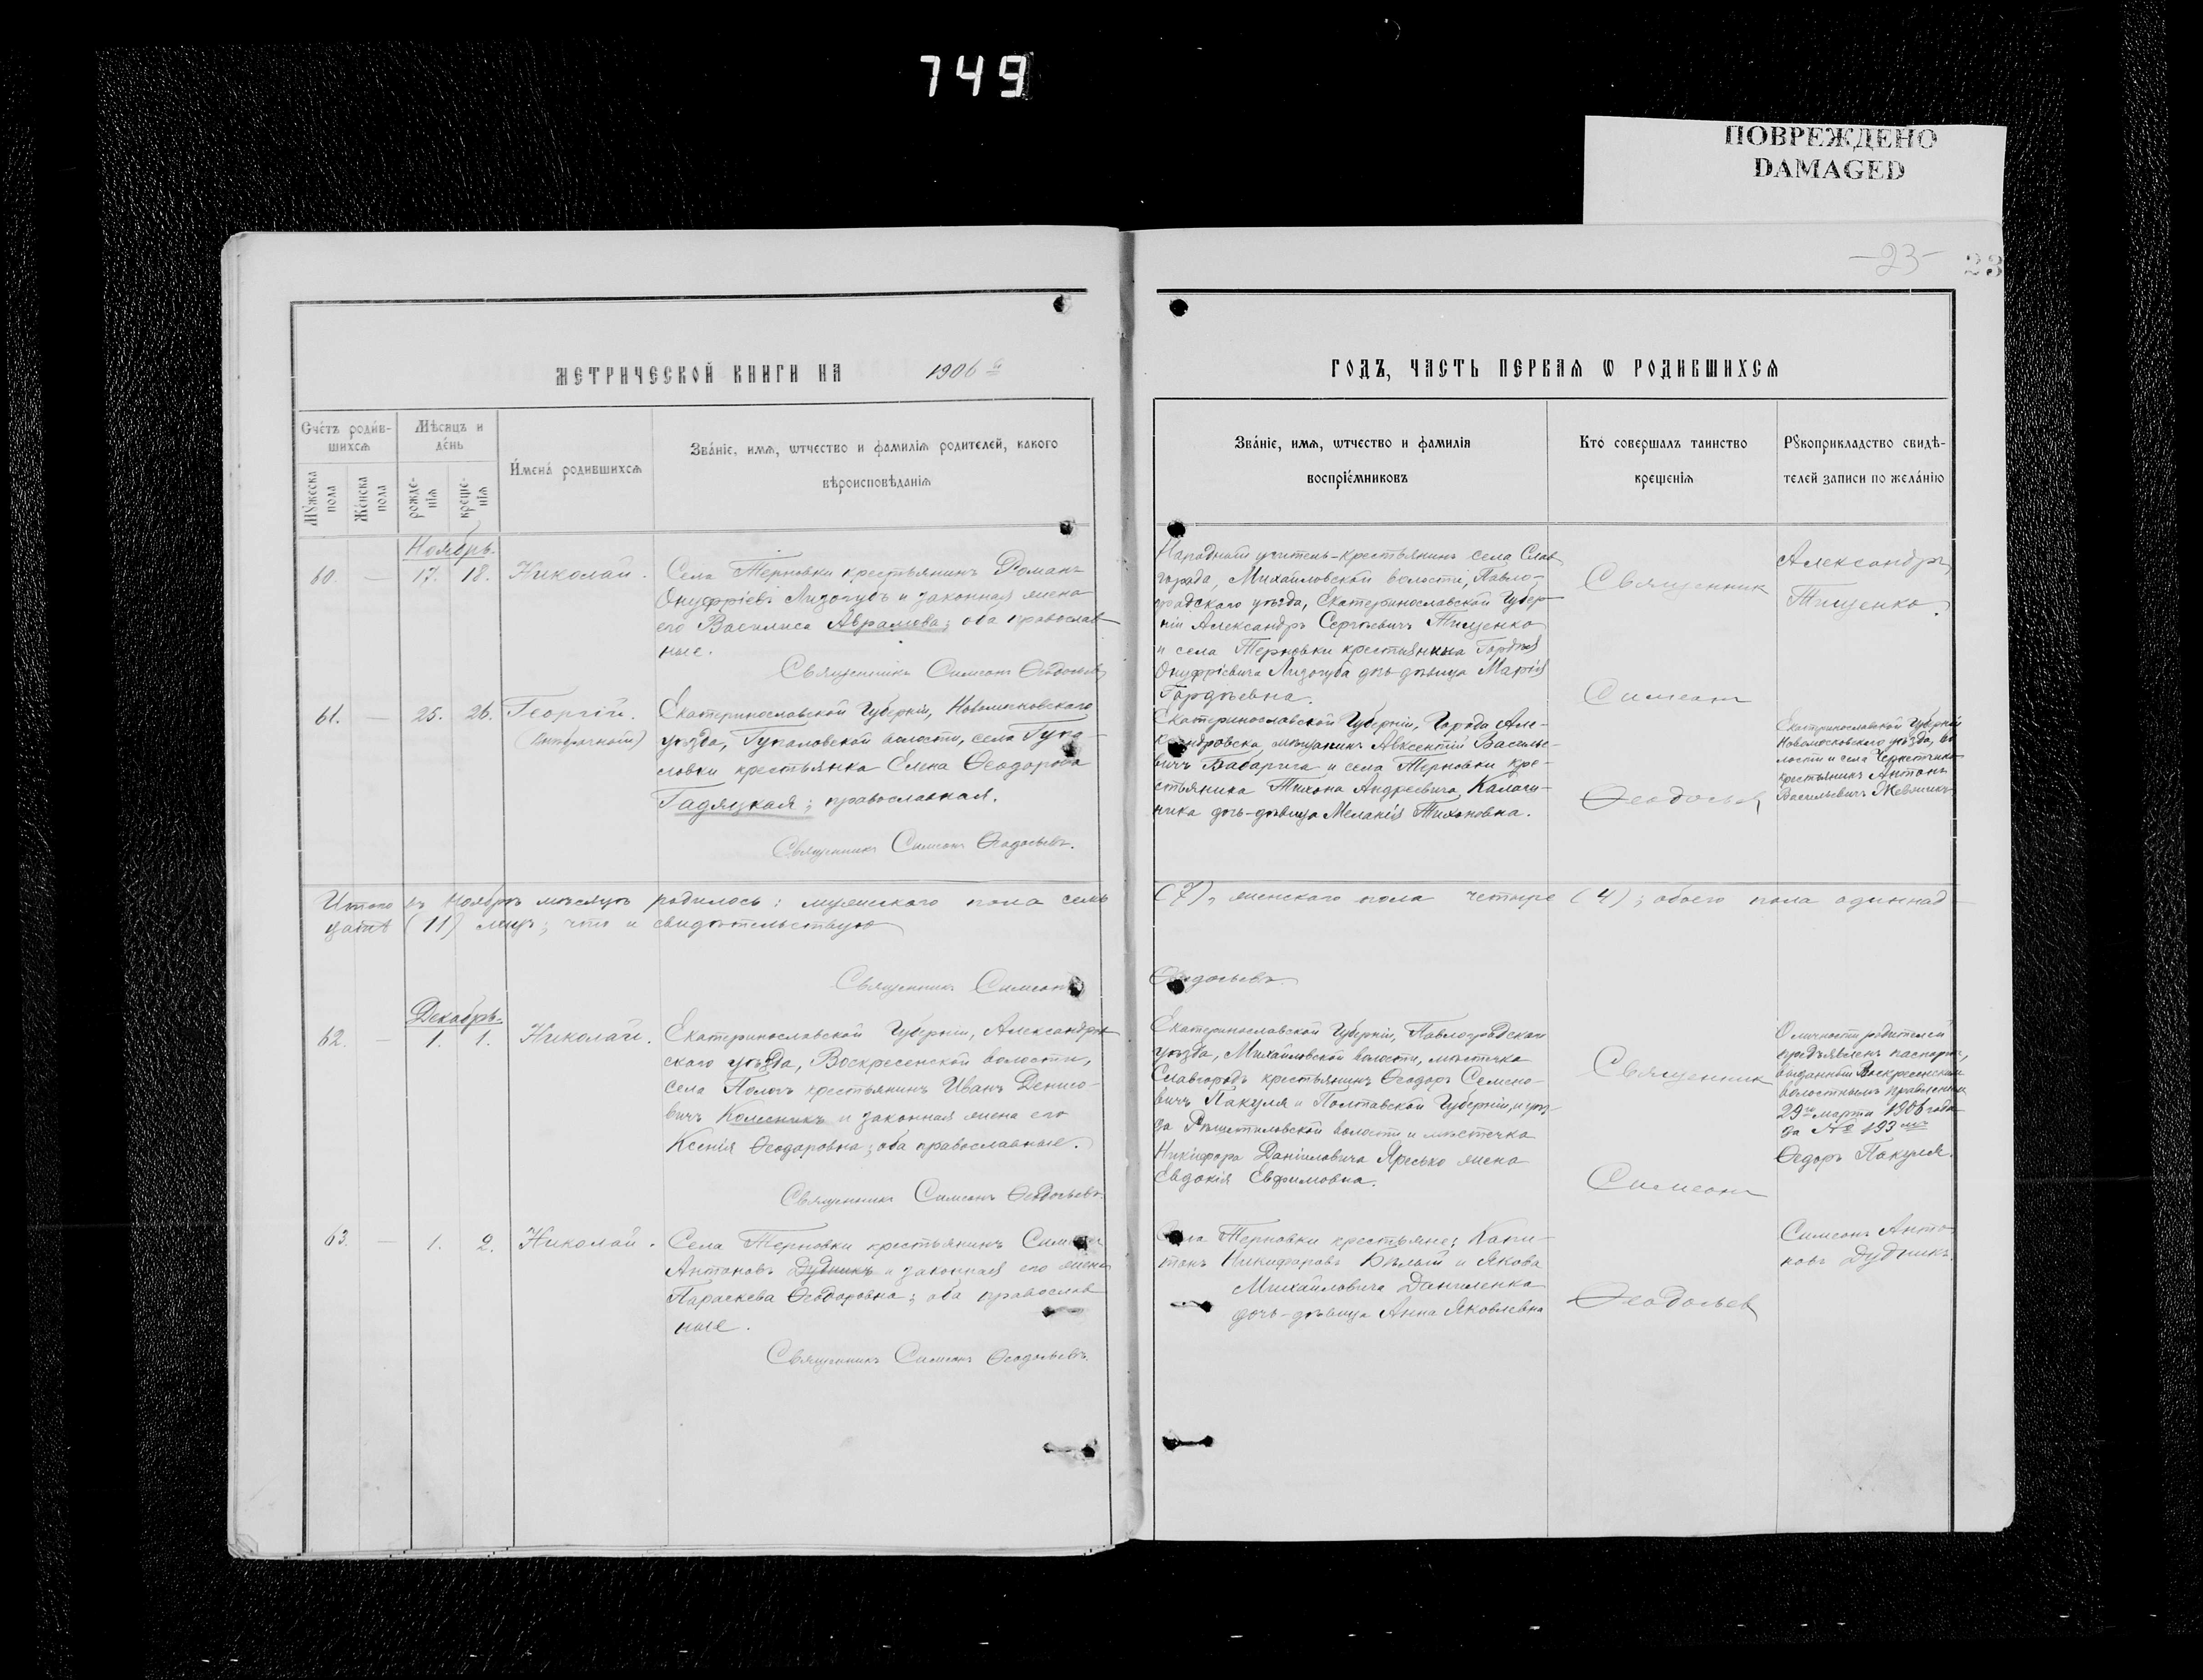 749
ПОВРЕЖДЕНО
DAMAGED
-23-
23
МЕТРИЧЕСКОЙ КНИГИ НА 1906 й
ГОДЪ, ЧАСТЬ ПЕРВАЯ Ѡ РОДИВШИХСЯ
Счётъ родив-
шихся
Мѣсяцъ и
день
Мужеска
пола
Женска
пола
рожде-
нія
креще-
нія
Имена родившихся
Званіе, имя, ѿчество и фамилія родителей, какого
вѣроисповѣданія
Званіе, имя, ѿчество и фамилія
воспріемниковъ
Кто совершалъ таинство
крещенія
Рукоприкладство свидѣ-
телей записи по желанію
Ноябрь.
60. — 17. 18. Николай.
Села Терновки крестьянинъ Романъ
Онуфріевъ Лизогубъ и законная жена
его Василиса Аврамова; оба православ
ные.
Священникъ Симеонъ Ѳеодосьевъ
Народный учитель-крестьянинъ села Слав
города, Михайловской волости, Павло-
градскаго уѣзда, Екатеринославской Губер
ніи Александръ Сергѣевичъ Тищенко
и села Терновки крестьянина Гордѣя
Онуфріевича Лизогуба дочь-дѣвица Марія
Гордѣевна.
Священник
Симеон
Александръ
Тищенко.
61. — 25. 26. Георгій.
Екатеринославской Губерніи, Новомосковскаго
уѣзда, Гупаловской волости, села Гупа-
ловки крестьянка Елена Ѳеодорова
Гадяцкая; православная.
Священникъ Симеонъ Ѳеодосьевъ.
Екатеринославской Губерніи, Города Але-
ксандровска мѣщанинъ Авксентій Василье-
вичъ Бабарыга и села Терновки кре-
стьянина Тихона Андреевича Калаш-
ника дочь-дѣвица Меланія Тихоновна.
Ѳеодосьев
Екатеринославской Губерніи
Новомосковскаго уѣзда, во
лости и села
крестьянинъ Антонъ
Васильевичъ
Итого въ Ноябрѣ мѣсяцѣ родилось: мужескаго пола семь (7), женскаго пола четыре (4); обоего пола одиннад
цать (11) лицъ; что и свидѣтельствую
Священникъ Симеонъ Ѳеодосьевъ.
Декабрь.
62. — 1. 1. Николай.
Екатеринославской Губерніи, Александров
скаго уѣзда, Воскресенской волости,
села Пологъ крестьянинъ Иванъ Денисо-
вичъ Колесникъ и законная жена его
Ксенія Ѳеодоровна; оба православные.
Священникъ Симеонъ Ѳеодосьевъ.
Екатеринославской Губерніи, Павлоградскаго
уѣзда, Михайловской волости, мѣстечка
Славгородъ крестьянинъ Ѳеодоръ Семено-
вичъ Пакуля и Полтавской Губерніи, и уѣз-
да Рѣшетиловской волости и мѣстечка
Никифора Даніиловича Яресько жена
Евдокія Евфимовна.
Священник
Симеон
О личности родителей
предъявленъ паспортъ,
выданный Воскресенскимъ
волостнымъ правленіемъ
29го марта 1906 года
за № 193
Ѳедоръ Пакуля.
63. — 1. 2. Николай.
Села Терновки крестьянинъ Симеонъ
Антоновъ Дудникъ и законная его жена
Параскева Ѳеодоровна; оба православ
ные.
Священникъ Симеонъ Ѳеодосьевъ.
Села Терновки крестьяне: Капи-
тонъ Никифоровъ Бѣлый и Якова
Михайловича Даниленка
дочь-дѣвица Анна Яковлевна
Ѳеодосьев
Симеонъ Анто-
новъ Дудникъ.